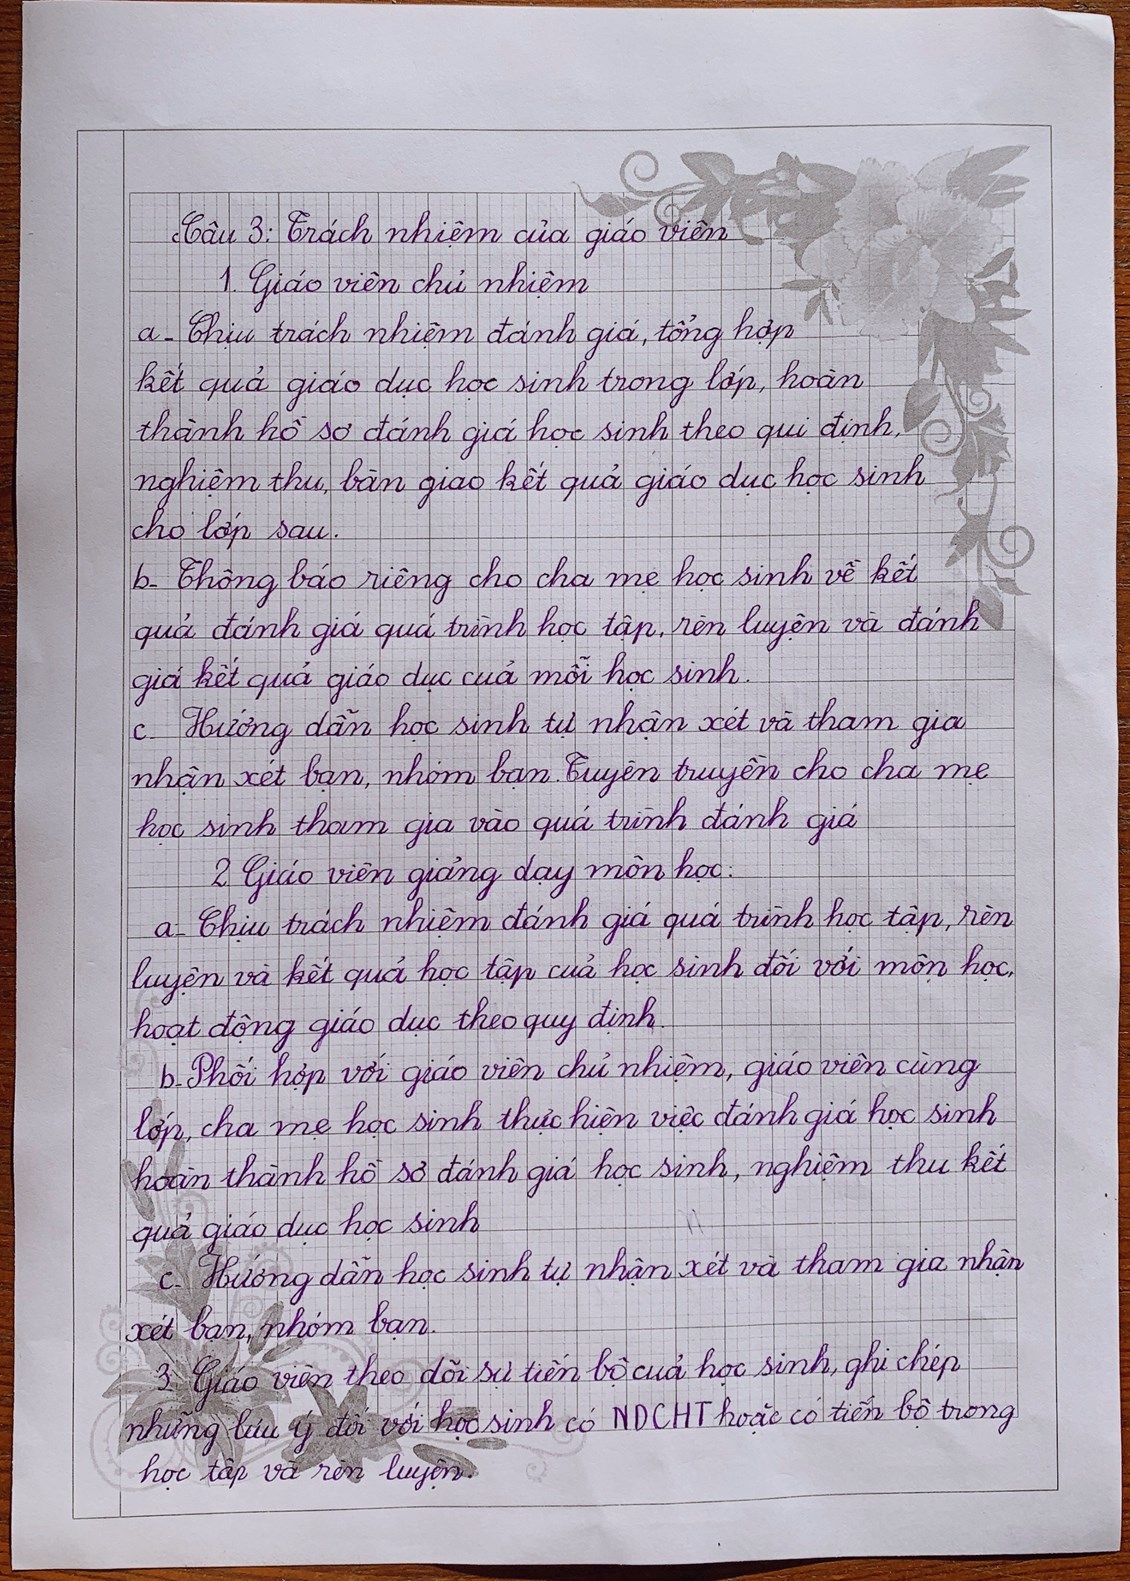 Câu 3: Trách nhiệm của giáo viên
1. Giáo viên chủ nhiệm
a- Chịu trách nhiệm đánh giá, tổng hợp
kết quả giáo dục học sinh trong lớp, hoàn
thành hồ sơ đánh giá học sinh theo qui định,
nghiệm thu, bàn giao kết quả giáo dục học sinh
cho lớp sau.
b- Thông báo riêng cho cha mẹ học sinh về kết
quả đánh giá quá trình học tập, rèn luyện và đánh
giá kết quả giáo dục của mỗi học sinh.
c- Hướng dẫn học sinh tự nhận xét và tham gia
nhận xét bạn, nhóm bạn. Tuyên truyền cho cha mẹ
học sinh tham gia vào quá trình đánh giá
2. Giáo viên giảng dạy môn học:
a- Chịu trách nhiệm đánh giá quá trình học tập, rèn
luyện và kết quả học tập của học sinh đối với môn học,
hoạt động giáo dục theo quy định.
b- Phối hợp với giáo viên chủ nhiệm, giáo viên cùng
lớp, cha mẹ học sinh thực hiện việc đánh giá học sinh
hoàn thành hồ sơ đánh giá học sinh, nghiệm thu kết
quả giáo dục học sinh
c- Hướng dẫn học sinh tự nhận xét và tham gia nhận
xét bạn, nhóm bạn.
3. Giáo viên theo dõi sự tiến bộ của học sinh, ghi chép
những lưu ý đối với học sinh có NDCHT hoặc có tiến bộ trong
học tập và rèn luyện.